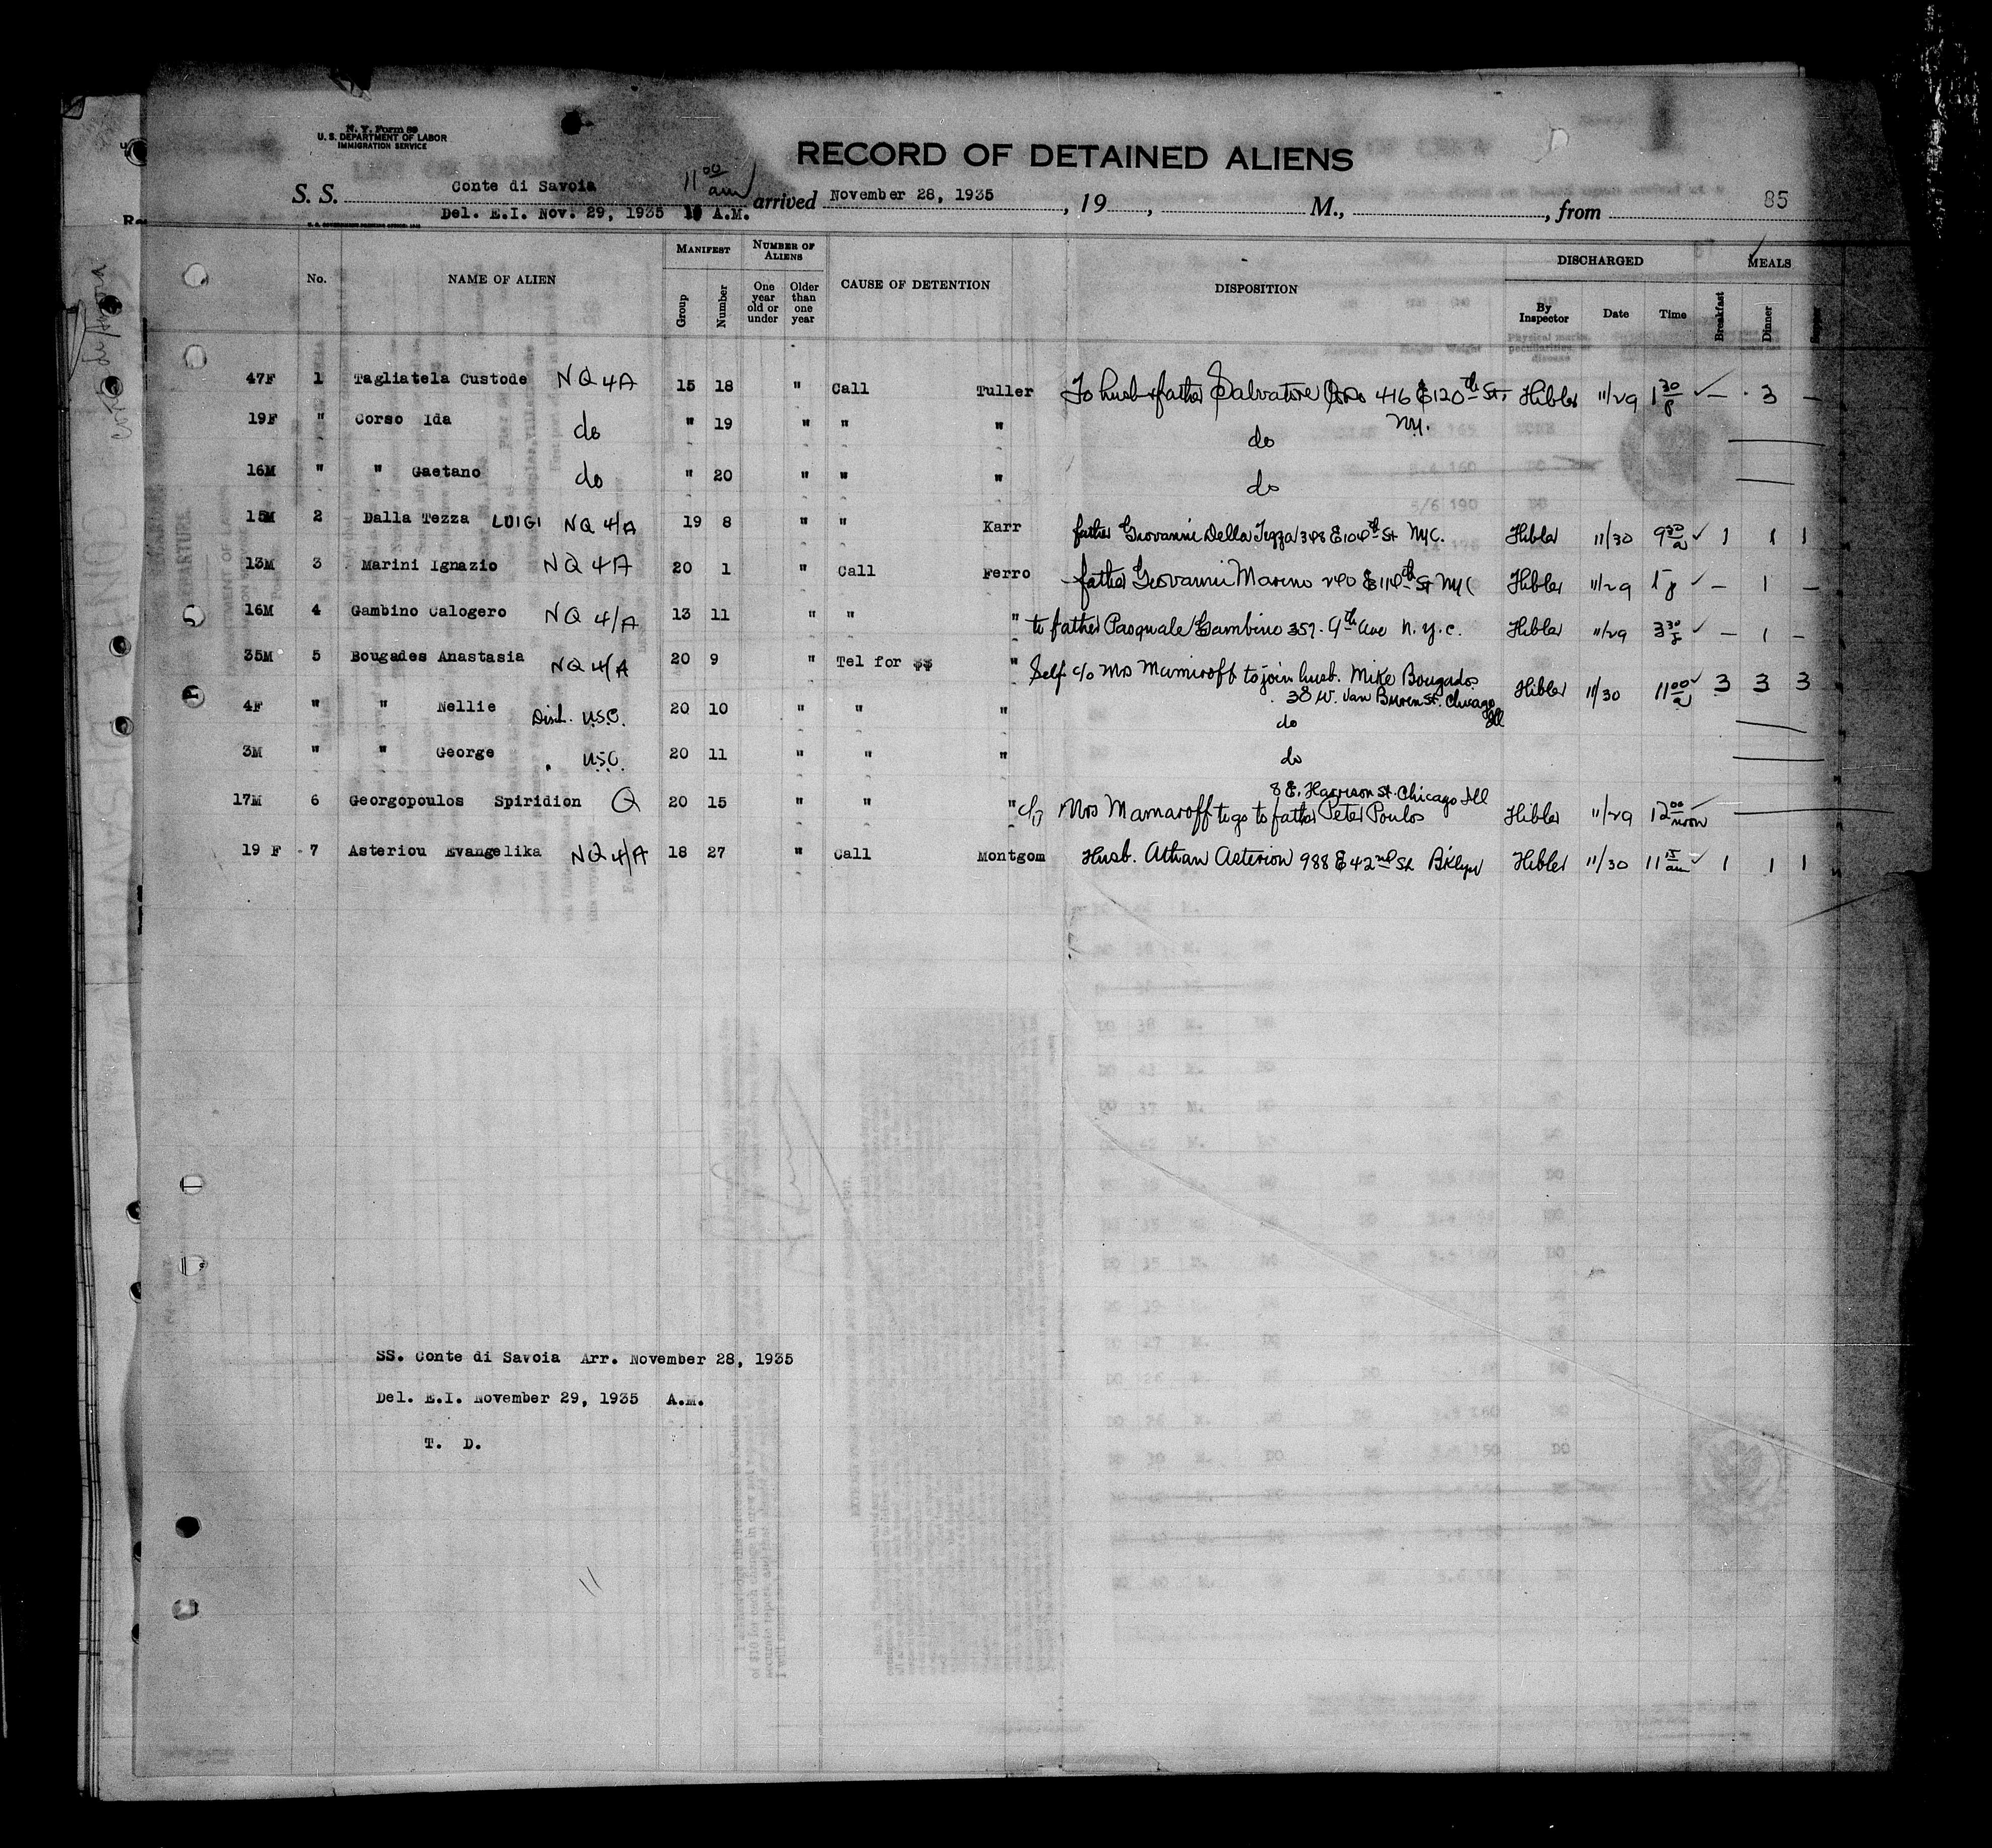 N. Y. Form 89
U. S. DEPARTMENT OF LABOR
IMMIGRATION SERVICE
RECORD OF DETAINED ALIENS
S. S. Conte di Savoia 11 00 am arrived November 28, 1935, 19 , M., , from 85
Del. E.I. Nov. 29, 1935 A.M.
No. NAME OF ALIEN MANIFEST Group Number NUMBER OF ALIENS One year old or under Older than one year CAUSE OF DETENTION DISPOSITION DISCHARGED By Inspector Date Time MEALS Breakfast Dinner Supper
47F 1 Tagliatela Custode NQ 4A 15 18 " Call Tuller To husb & father Salvatore 416 E 120th St. Hibler 11/29 1 30 p ✓ — 3 —
N.Y.
19F " Corso Ida do " 19 " " " do
16M " " Gaetano do " 20 " " " do
15M 2 Dalla Tezza LUIGI NQ 4/A 19 8 " " Karr father Giovanni Della Tezza 348 E 104th St NYC. Hibler 11/30 9 30 a ✓ 1 1 1
13M 3 Marini Ignazio NQ 4A 20 1 " Call Ferro father Giovanni Marino 240 E 114th St NYC Hibler 11/29 1 p ✓ — 1 —
16M 4 Gambino Calogero NQ 4/A 13 11 " " " to father Pasquale Gambino 357. 9th Ave N.Y.C. Hibler 11/29 3 30 p ✓ — 1 —
35M 5 Bougades Anastasia NQ 4/A 20 9 " Tel for $$ " Self c/o Mrs Mamaroff to join husb. Mike Bougados Hibler 11/30 11 00 a ✓ 3 3 3
38 W. Van Buren St. Chicago Ill
4F " " Nellie Disch. USC. 20 10 " " " do
3M " " George " USC. 20 11 " " " do
8 E. Harrison St. Chicago Ill
17M 6 Georgopoulos Spiridion Q 20 15 " " " c/o Mrs Mamaroff to go to father Peter Poulos Hibler 11/29 12 00 noon
19 F 7 Asteriou Evangelika NQ 4/A 18 27 " Call Montgom Husb. Athan Asterion 988 E 42nd St Bklyn Hibler 11/30 11 15 am ✓ 1 1 1
SS. Conte di Savoia Arr. November 28, 1935
Del. E.I. November 29, 1935 A.M.
T. D.